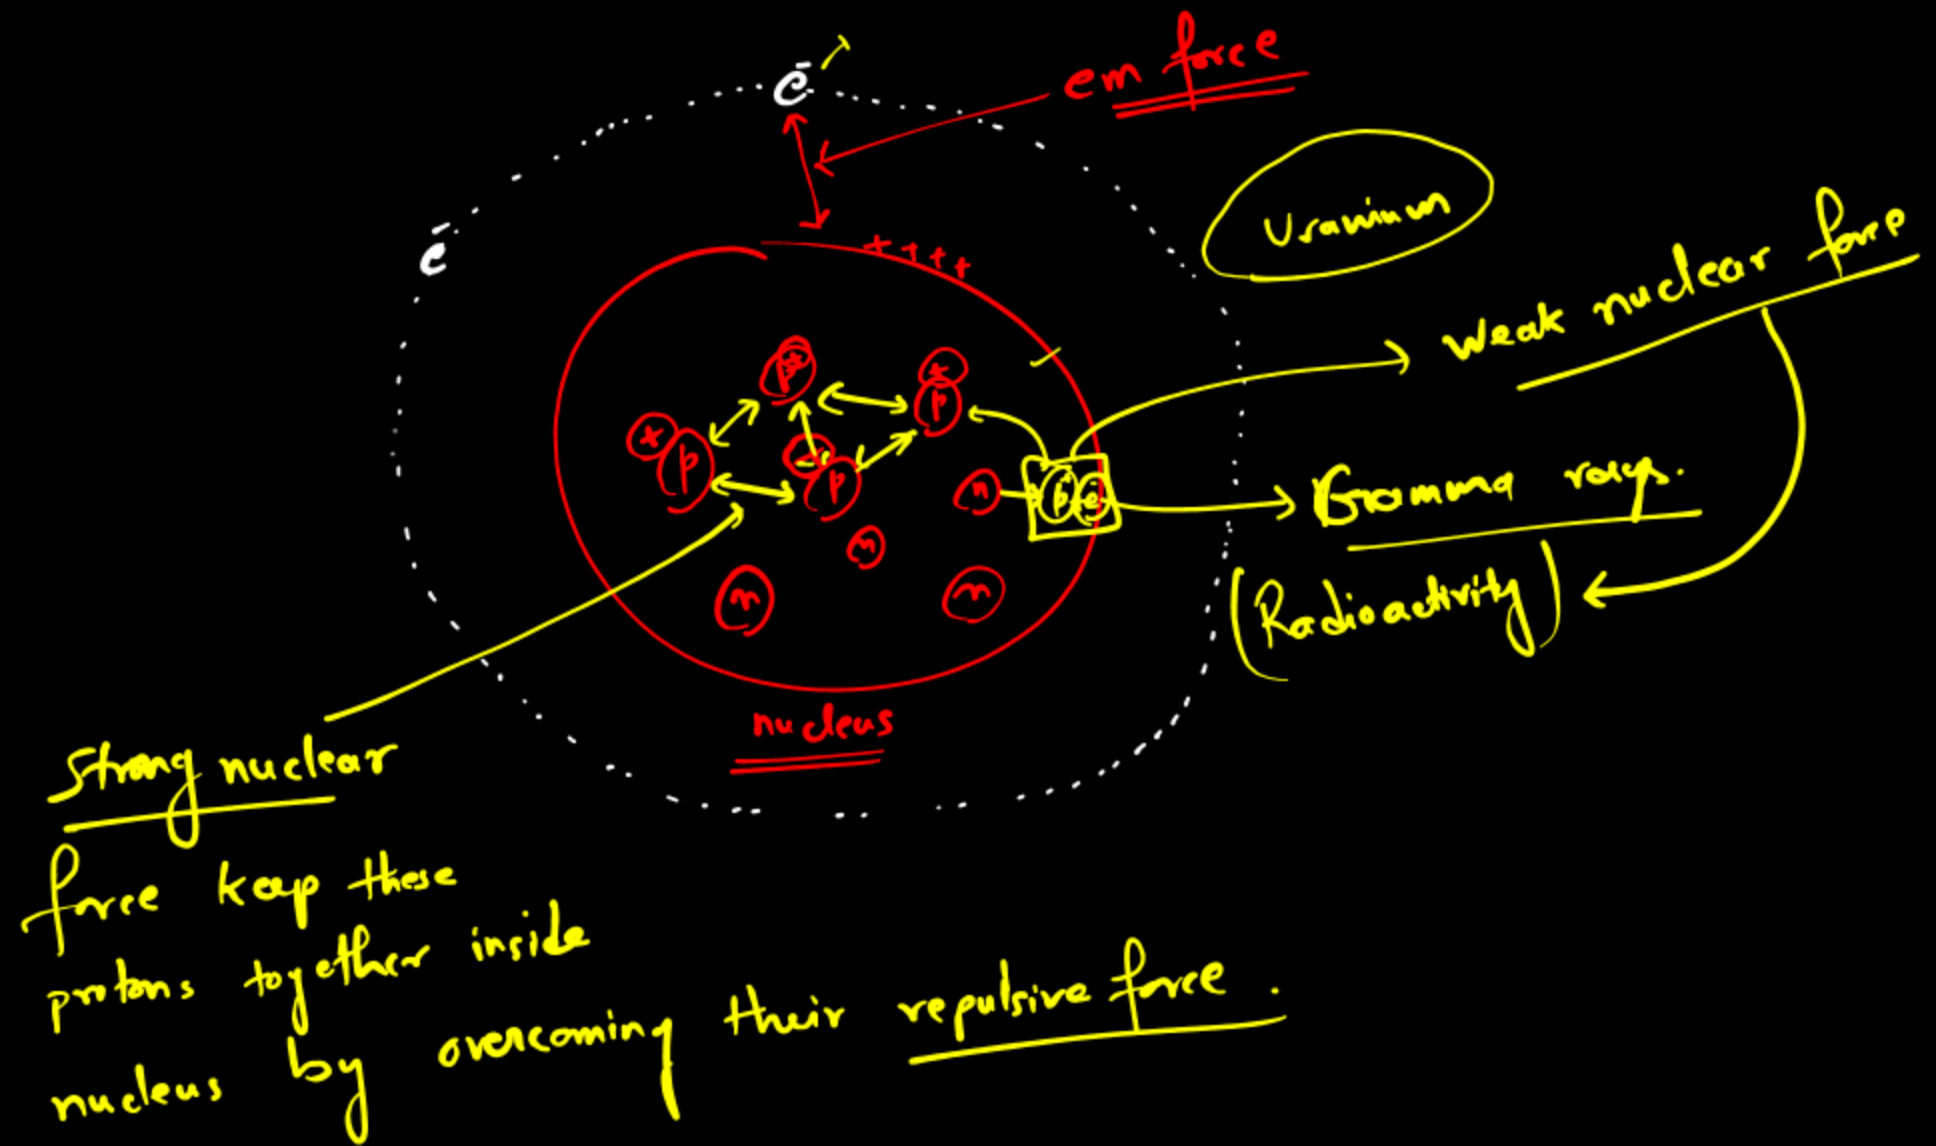 e⁻
em force
e⁻
Uranium
+ + + +
Weak nuclear force
p
+
p
+
p
p
n
p e⁻
Gamma rays.
n
(Radioactivity)
n
n
nucleus
Strong nuclear
force keep these
protons together inside
nucleus by overcoming their repulsive force.